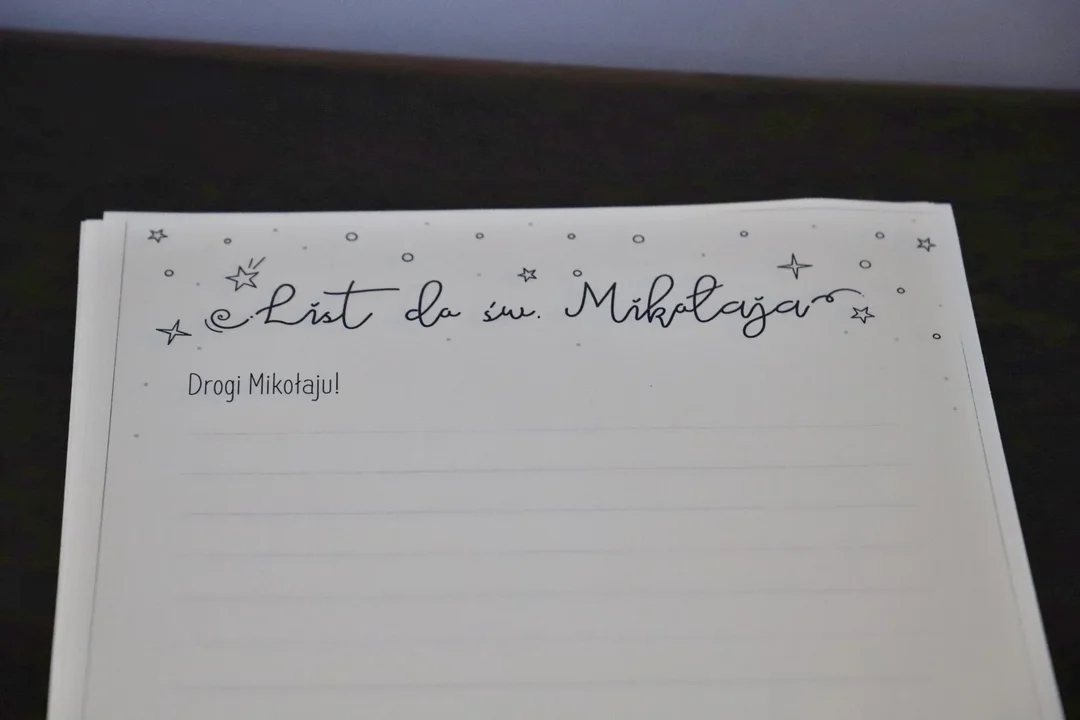 List do św. Mikołaja
Drogi Mikołaju!